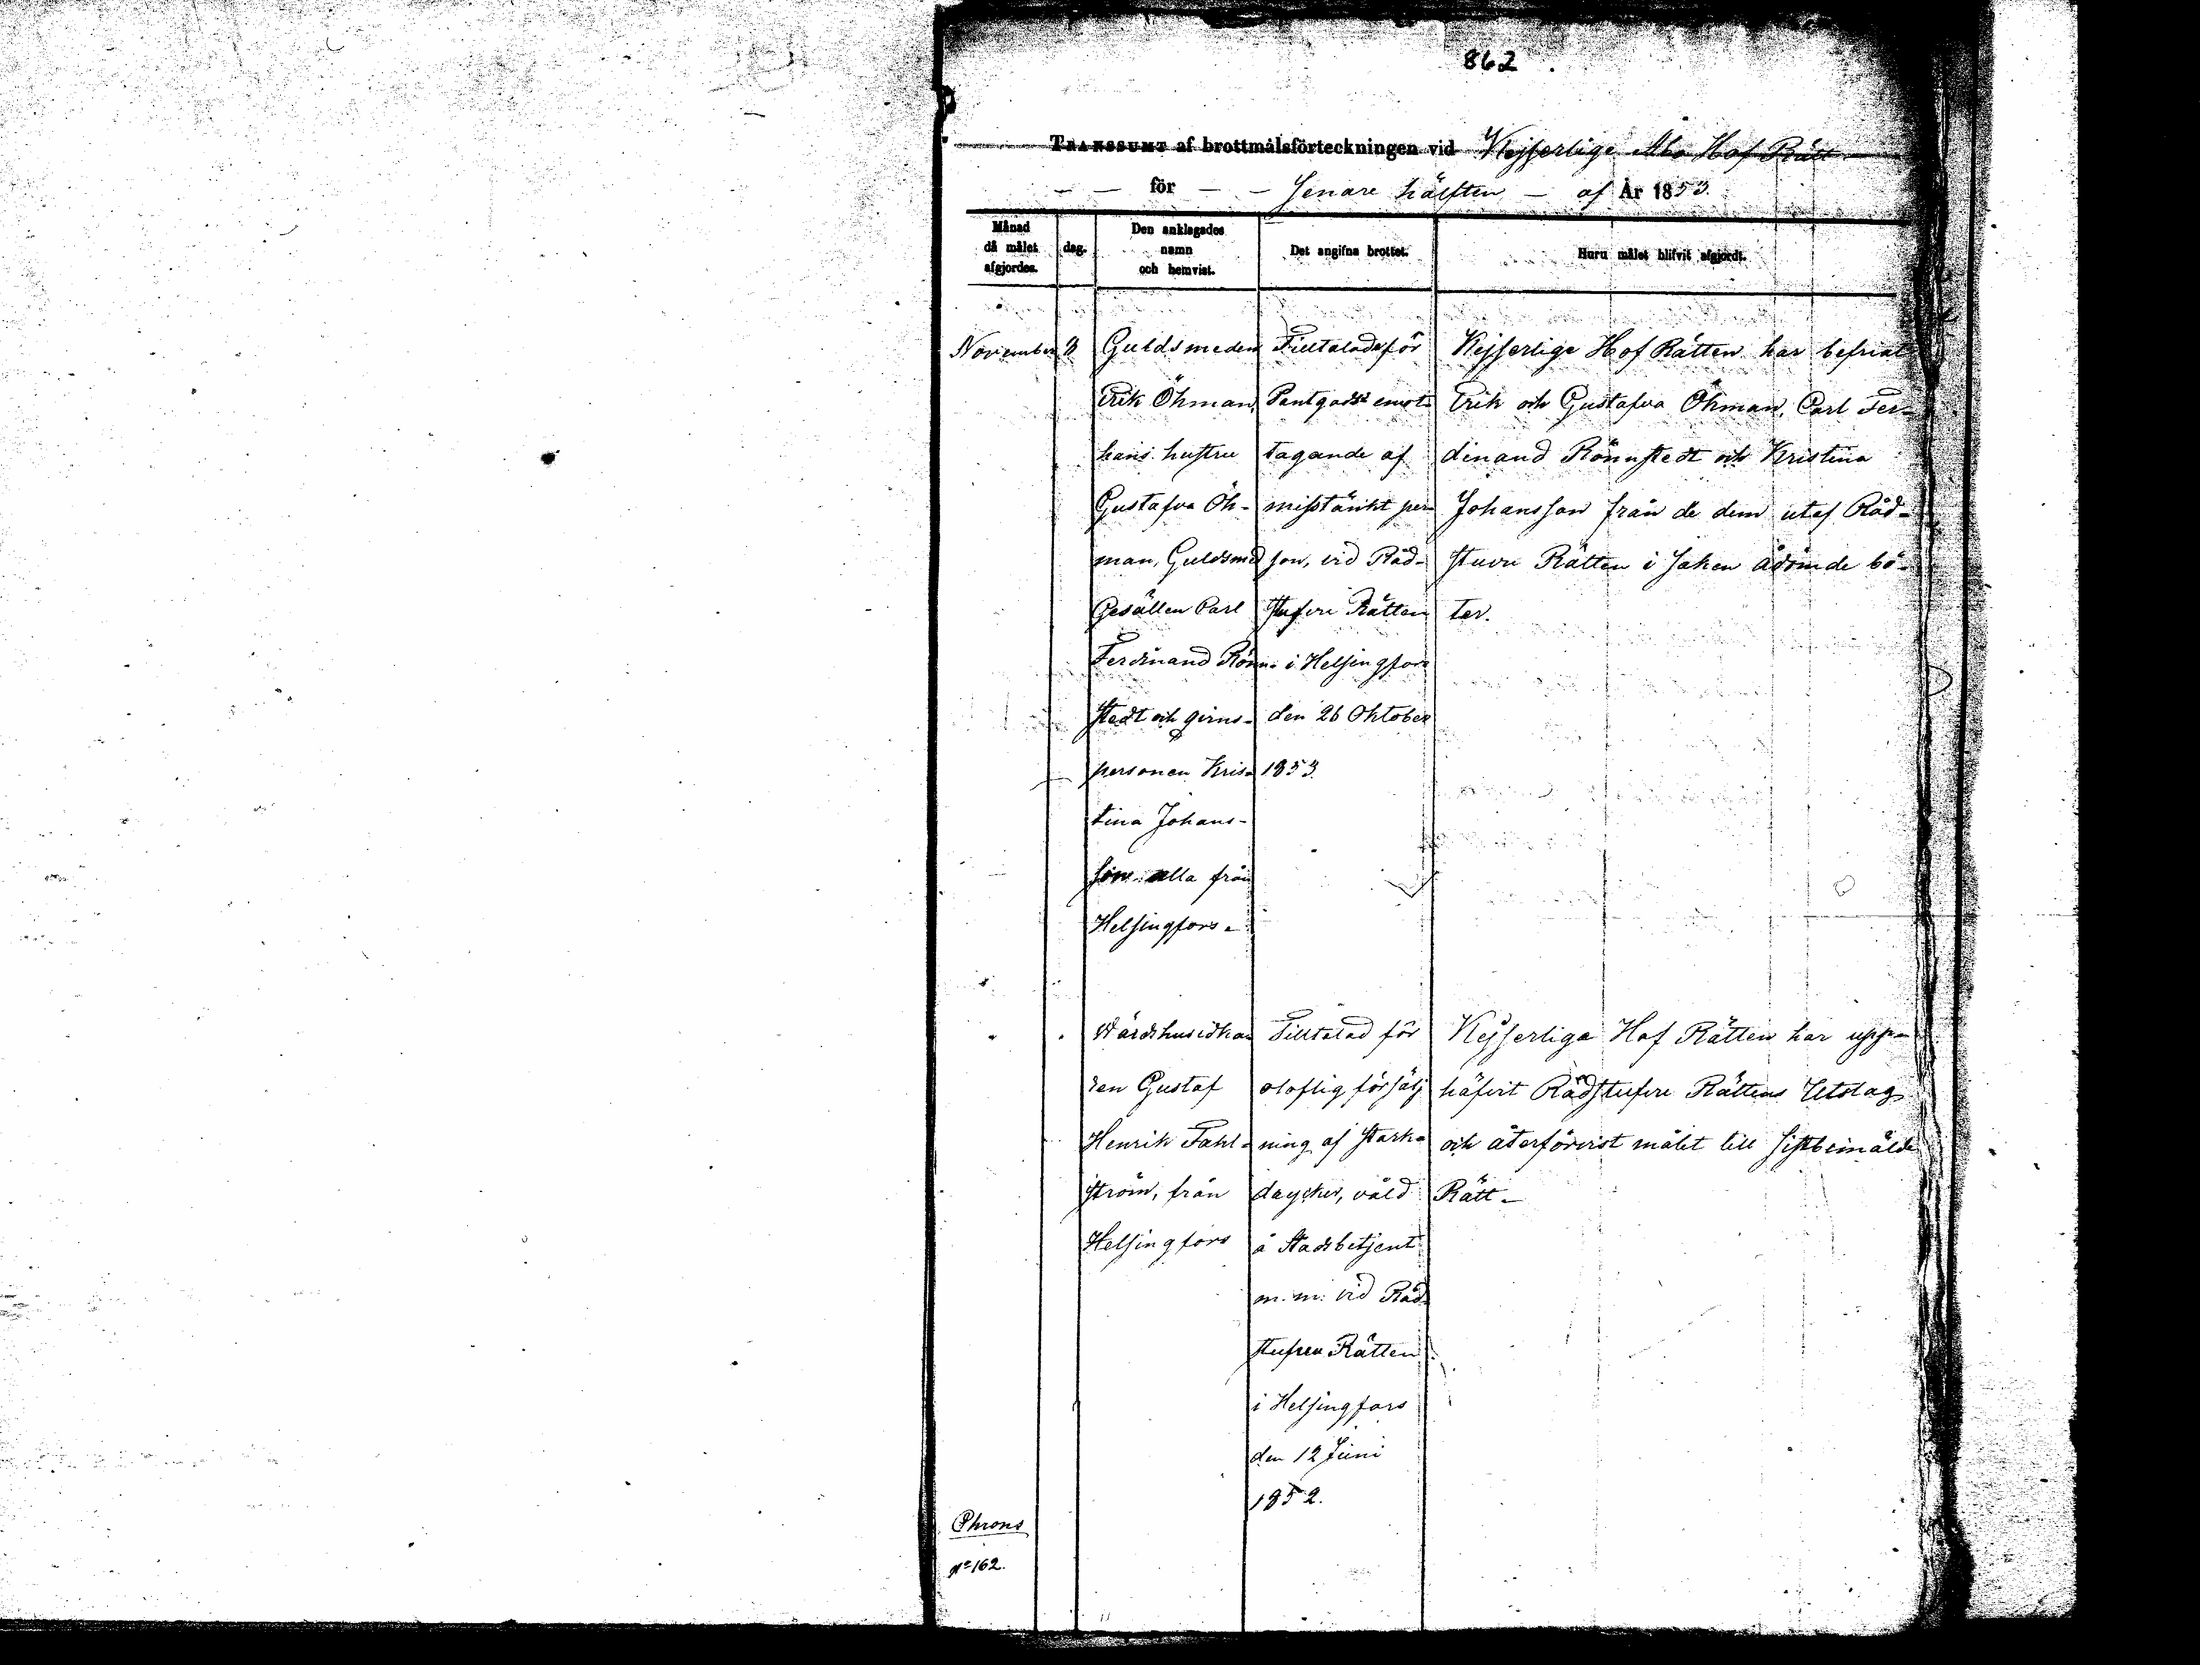 862
TRANSSUMT af brottmålsförteckningen vid Kejserlige Abo Hof Rätt
för Senare hälften af År 1853
Månad
då målet
afgjordes.
dag.
Den anklagades
namn
och hemvist.
Det angifna brottet.
Huru målet blifvit afgjordt.
November 8
Guldsmeden
Erik Öhman,
hans hustru
Gustafva Öh-
man, Guldsmed
Gesällen Carl
Ferdinand Rönn-
stedt och
personen Kris-
tina Johans-
son alla från
Helsingfors.
Tilltalade för
Pantgods emot-
tagande af
misstänkt per-
son, vid Råd-
stufvu Rätten
i Helsingfors
den 26 Oktober
1853.
Kejserlige Hof Rätten har befriat
Erik och Gustafva Öhman, Carl Fer-
dinand Rönnstedt och Kristina
Johansson från de dem utaf Råd-
stuvu Rätten i saken ådömde bö-
ter.
Wärdshusidka-
ren Gustaf
Henrik Fahl-
ström, från
Helsingfors
Tilltalad för
olaflig försälj
ning af starka
drycker, våld
å Stadsbetjent
m. m. vid Råd-
stufvu Rätten
i Helsingfors
den 12 Juni
1852.
Kejserliga Hof Rätten har upp-
häfvit Rådstufvu Rättens Utslag
och återförvist målet till sistbemälde
Rätt.
Phrons
No 162.